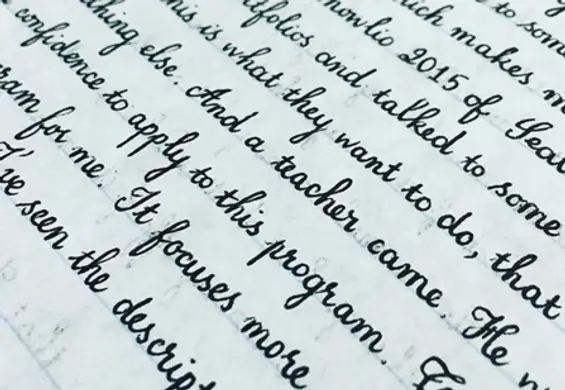 to som
uch makes m
nowlio 2015 of Sea
tfolios and talked to some
his is what they want to do, that
thing else. And a teacher came. He
confidence to apply to this program.
ram for me. It focuses more
I've seen the descript